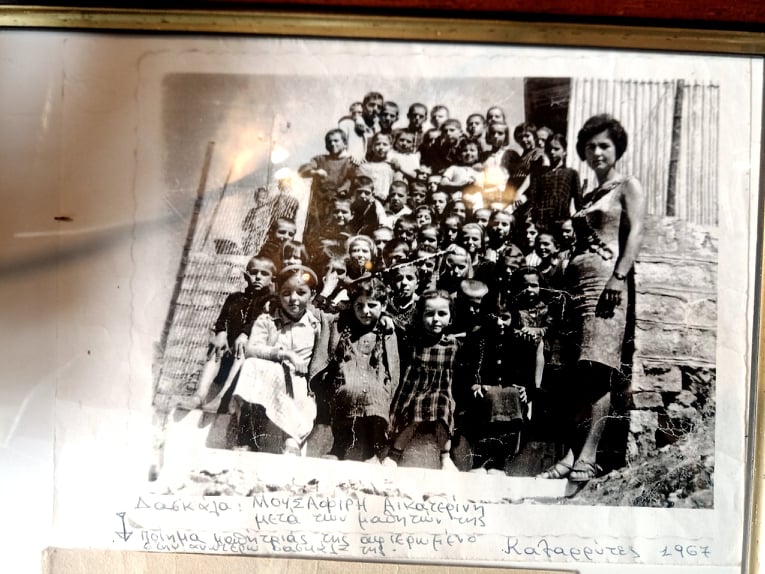 Δασκάλα: ΜΟΥΣΑΦΙΡΗ Αικατερίνη
μετά των μαθητών της
Ποίημα μαθητριάς της αφιερωμένο
στην ανωτέρω δασκάλα της.
Καταρρύτες 1967